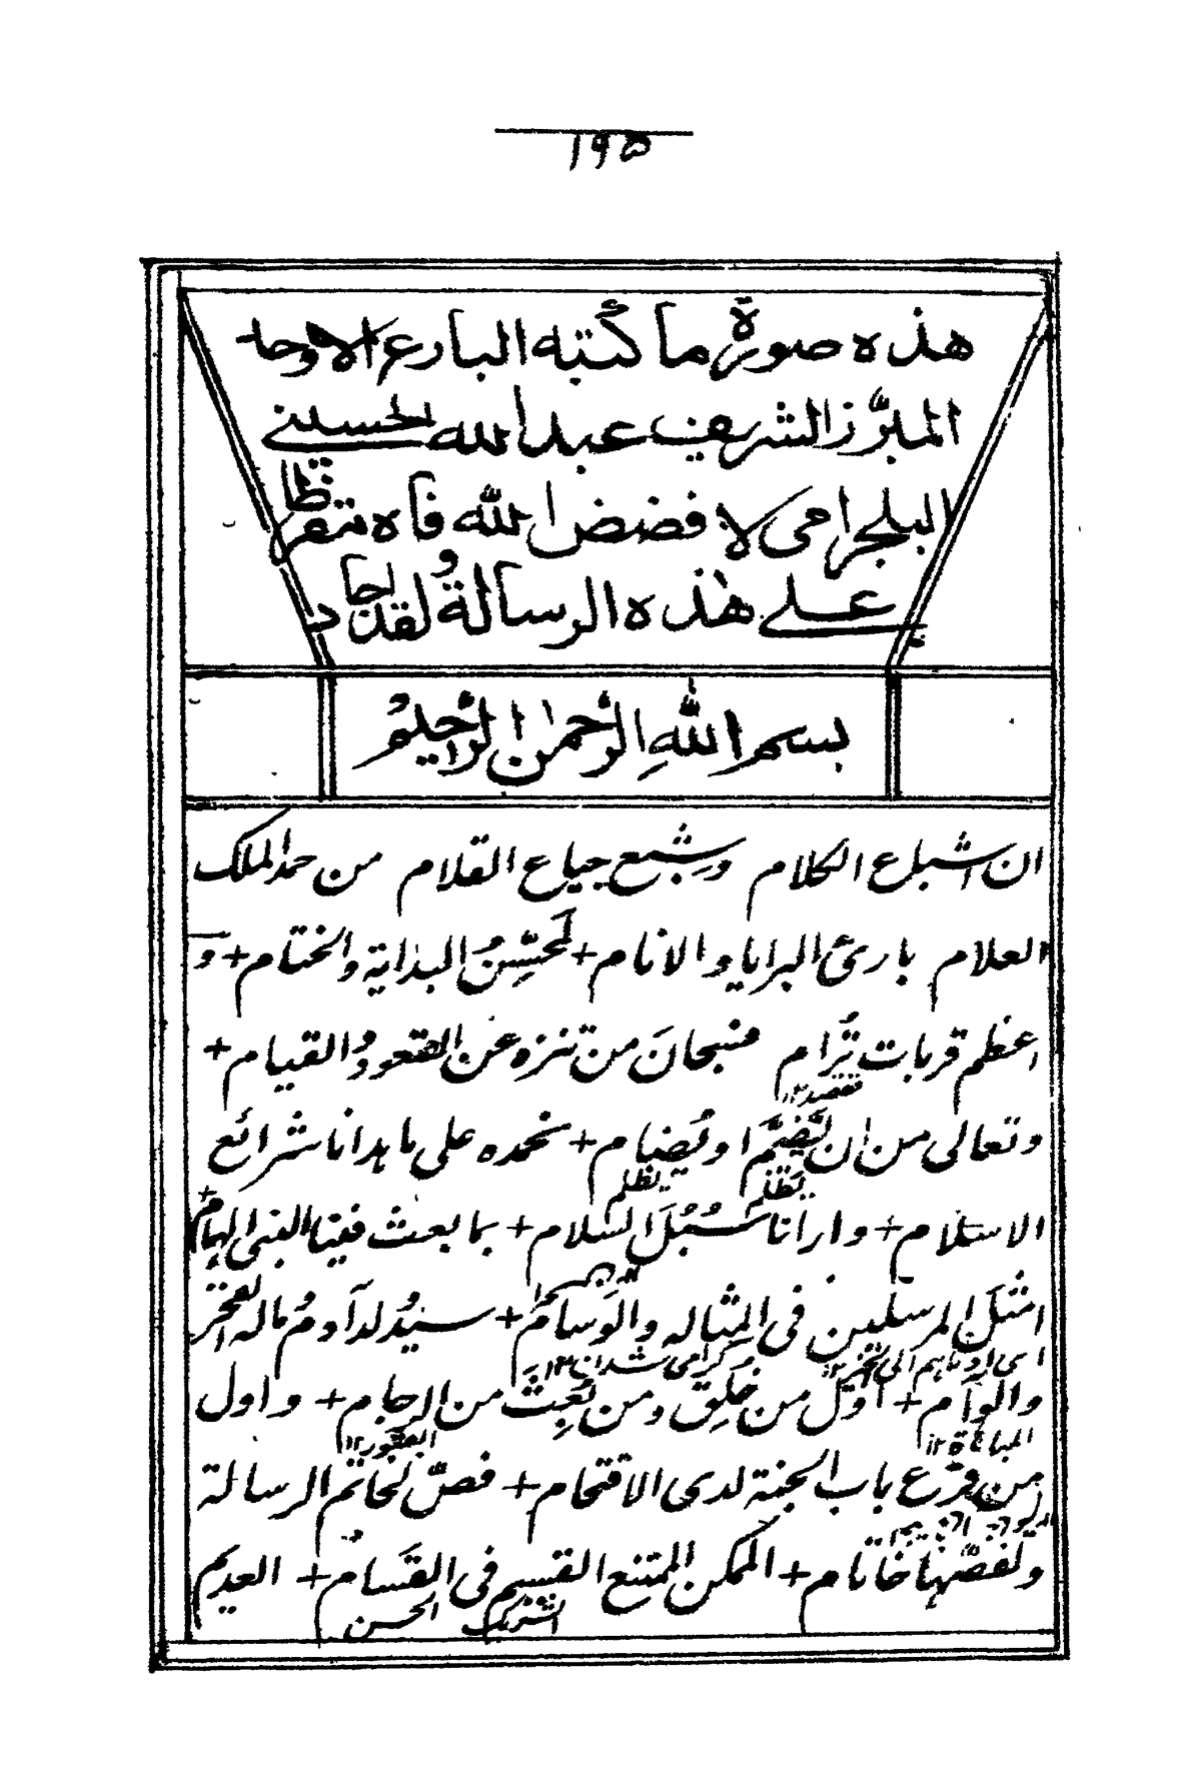 ١٩٥
هذه صورة ما كتبه البارع الاوحد
المبرز الشريف عبد الله الحسيني
البلجرامي لا فضض الله فاه متقرظا
على هذه الرسالة ولقد اجاد
بسم الله الرحمن الرحيم
ان اشباع الكلام وشبع جياع القلام من حمد الملك
العلام بارئ البرايا والانام + لمحسن البداية والختام + و
اعظم قربات ترام فسبحان من تنزه عن القعود والقيام +
نقصد ١٢
وتعالى من ان يضيم او يضام + نحمده على ما هدانا شرائع
يظلم يظلم
الاسلام + وارانا سبل السلام + بما بعث فينا النبي الهمام +
امثل المرسلين في المثالة والوسام + سيد ولد آدم ماله الفخر
گرامی شدن ١٢
والوآم + اول من خلق ومن يبعث من الرجام + واول
المباهاة ١٢ القبور ١٢
من قرع باب الجنة لدى الاقتحام + فص لخاتم الرسالة
ولفصها خاتام + الممكن الممتنع القسيم في القسام + العديم
الشريك الحسن